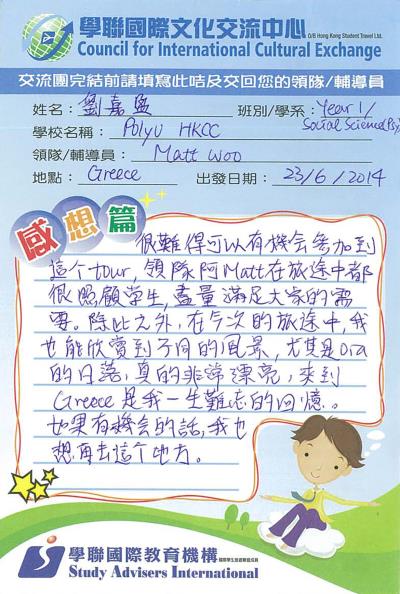 學聯國際文化交流中心 O/B Hong Kong Student Travel Ltd.
Council for International Cultural Exchange
交流團完結前請填寫此咭及交回您的領隊/輔導員
姓名：劉嘉盈 班別/學系：Year 1/
Social Science(Psy)
學校名稱：PolyU HKCC
領隊/輔導員：Matt Woo
地點：Greece 出發日期：23/6/2014
感想篇
很難得可以有機會參加到
這个tour, 領隊阿Matt在旅途中都
很照顧學生, 盡量滿足大家的需
要。除此之外, 在今次的旅途中, 我
也能欣賞到不同的風景, 尤其是Oia
的日落, 真的非常漂亮, 來到
Greece是我一生難忘的回憶。
如果有機會的話, 我也
想再去這个地方。
學聯國際教育機構
Study Advisers International